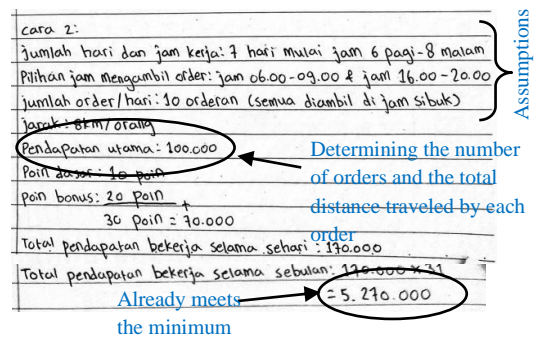 cara 2:
jumlah hari dan jam kerja: 7 hari mulai jam 6 pagi-8 malam
Pilihan jam mengambil order: jam 06.00-09.00 & jam 16.00-20.00
jumlah order/hari: 10 orderan (semua diambil di jam sibuk)
jarak: 8km/orang
Pendapatan utama: 100.000
Poin dasar: 10 poin
poin bonus: 20 poin +
30 poin = 70.000
Total pendapatan bekerja selama sehari: 170.000
Total pendapatan bekerja selama sebulan: 170.000 x 31
= 5.270.000
Assumptions
Determining the number
of orders and the total
distance traveled by each
order
Already meets
the minimum